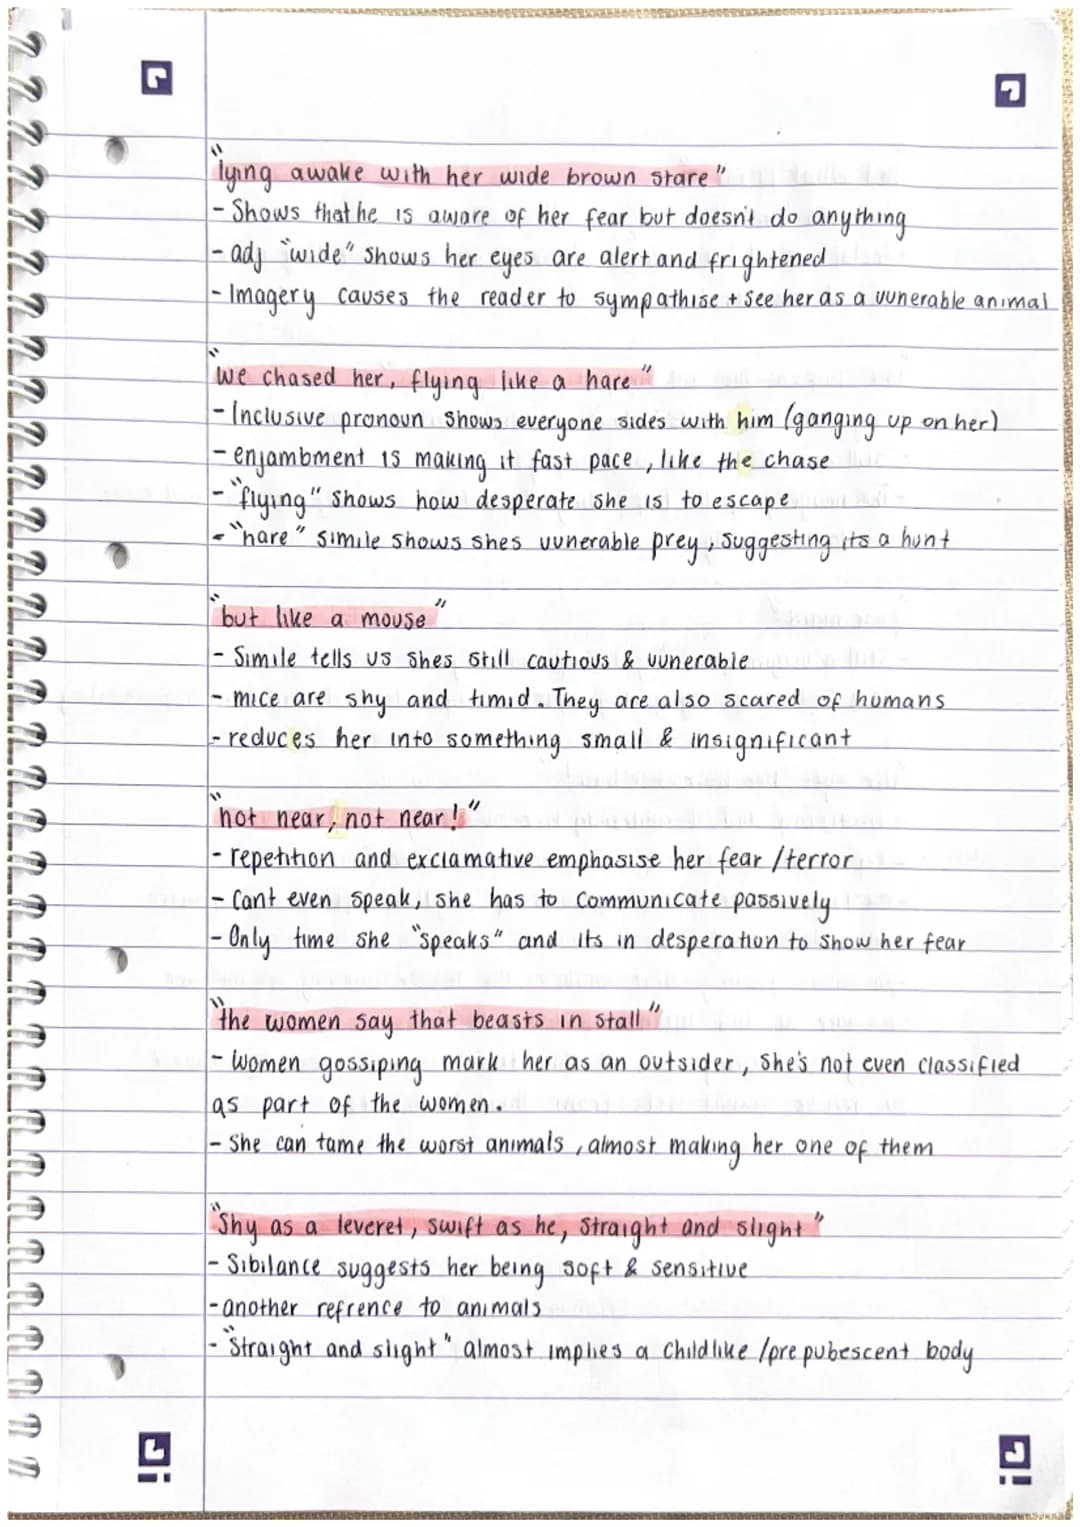 "lying awake with her wide brown stare"
- Shows that he is aware of her fear but doesn't do anything
- adj "wide" shows her eyes are alert and frightened
- Imagery causes the reader to sympathise + see her as a vunerable animal
"we chased her, flying like a hare"
- Inclusive pronoun shows everyone sides with him (ganging up on her)
- enjambment is making it fast pace, like the chase
- "flying" shows how desperate she is to escape
- "hare" simile shows shes vunerable prey, suggesting its a hunt
"but like a mouse"
- Simile tells us shes still cautious & vunerable
- mice are shy and timid. They are also scared of humans
- reduces her into something small & insignificant
"not near, not near!"
- repetition and exclamative emphasise her fear /terror
- Cant even speak, she has to communicate passively
- Only time she "speaks" and its in desperation to show her fear
"the women say that beasts in stall"
- Women gossiping mark her as an outsider, she's not even classified
as part of the women.
- She can tame the worst animals, almost making her one of them
"Shy as a leveret, swift as he, Straight and slight"
- Sibilance suggests her being soft & sensitive
- another refrence to animals
- "Straight and slight" almost implies a childlike /pre pubescent body